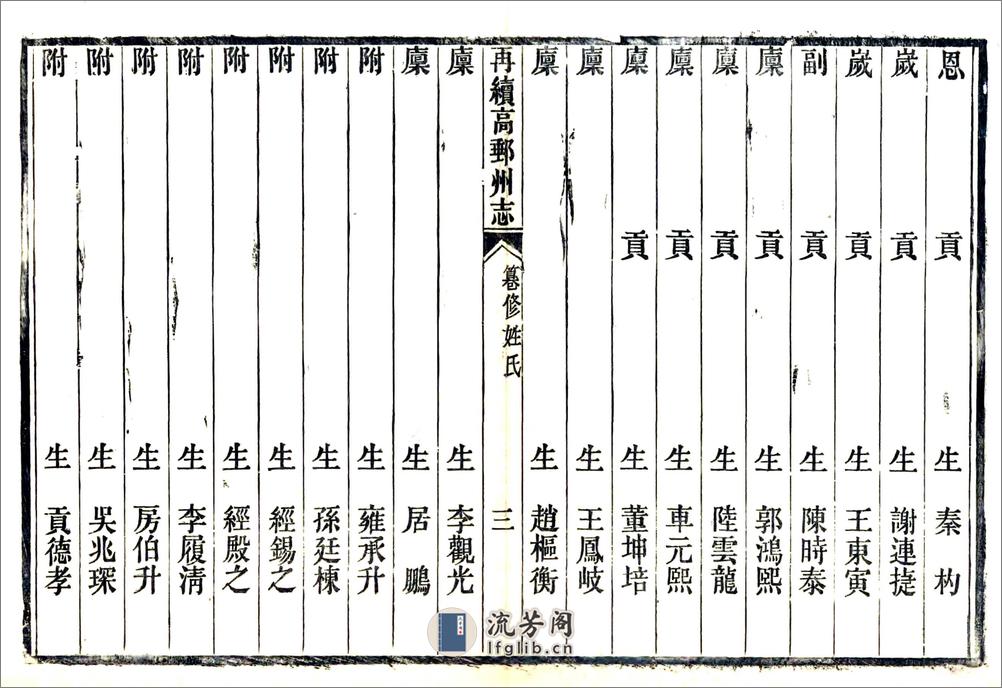 恩貢生 秦杓
歲貢生 謝連㨗
歲貢生 王東寅
副貢生 陳時泰
廩貢生 郭鴻熙
廩貢生 陸雲龍
廩貢生 車元熙
廩貢生 董坤培
廩生 王鳳岐
廩生 趙樞衡
再續高郵州志 纂修姓氏 三
廩生 李觀光
廩生 居鵬
附生 雍承升
附生 孫廷棟
附生 經錫之
附生 經殿之
附生 李履淸
附生 房伯升
附生 吳兆琛
附生 貢德孝
流芳阁
lfglib.cn